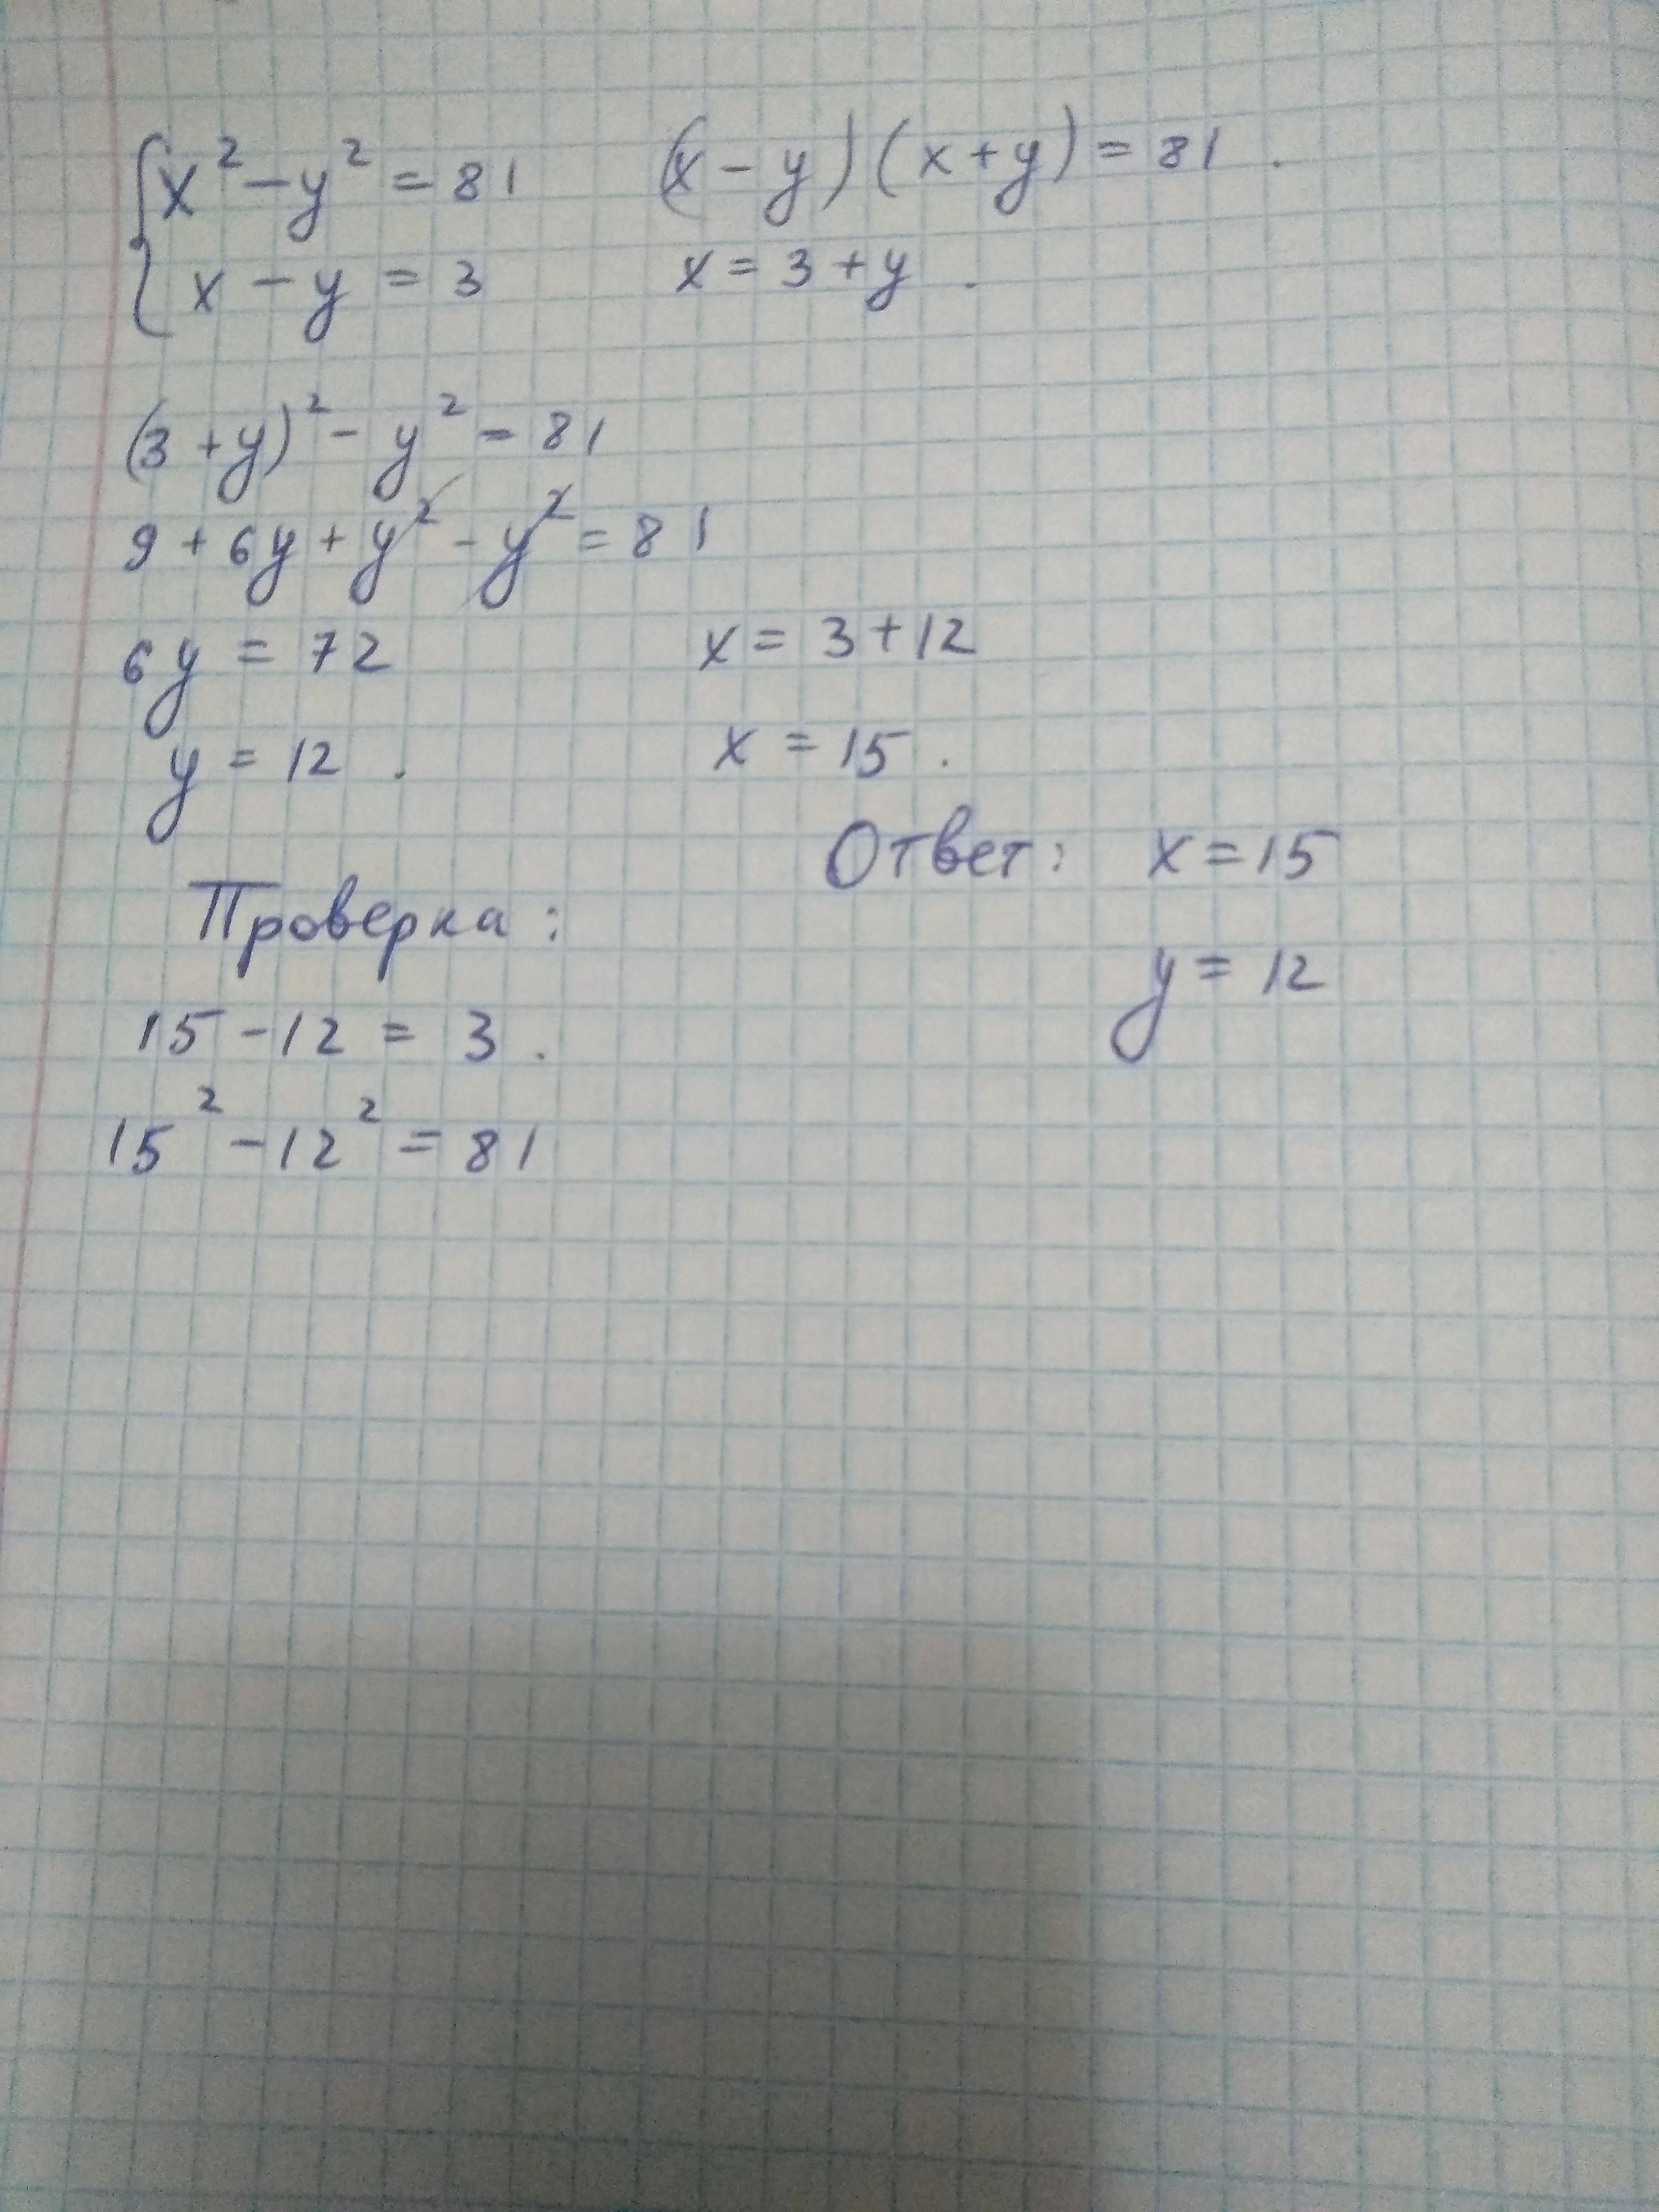 x² - y² = 81 (x - y)(x + y) = 81.
x - y = 3 x = 3 + y.
(3 + y)² - y² = 81
9 + 6y + y² - y² = 81
6y = 72 x = 3 + 12
y = 12. x = 15.
Ответ: x = 15
Проверка:
y = 12
15 - 12 = 3.
15² - 12² = 81